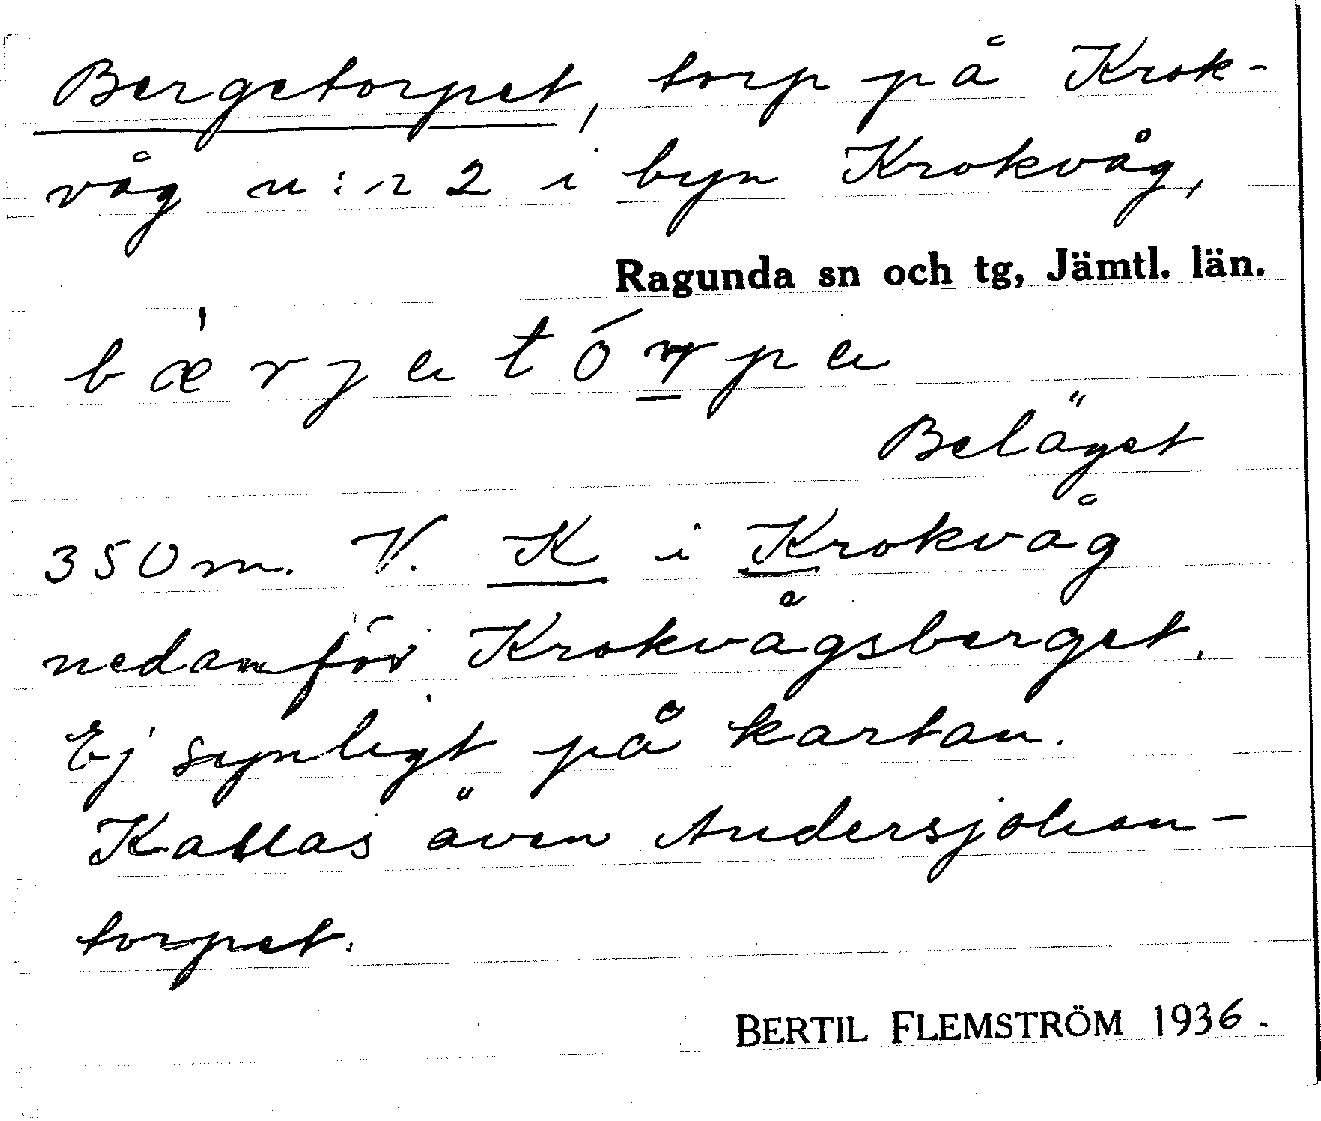 Bergetorpet, torp på Krok-
våg n:r 2 i byn Krokvåg,
Ragunda sn och tg, Jämtl. län.
Beläget
350 m. V. K i Krokvåg
nedanför Krokvågsberget.
Ej synligt på kartan.
Kallas även Andersjohan-
torpet.
BERTIL FLEMSTRÖM 1936.